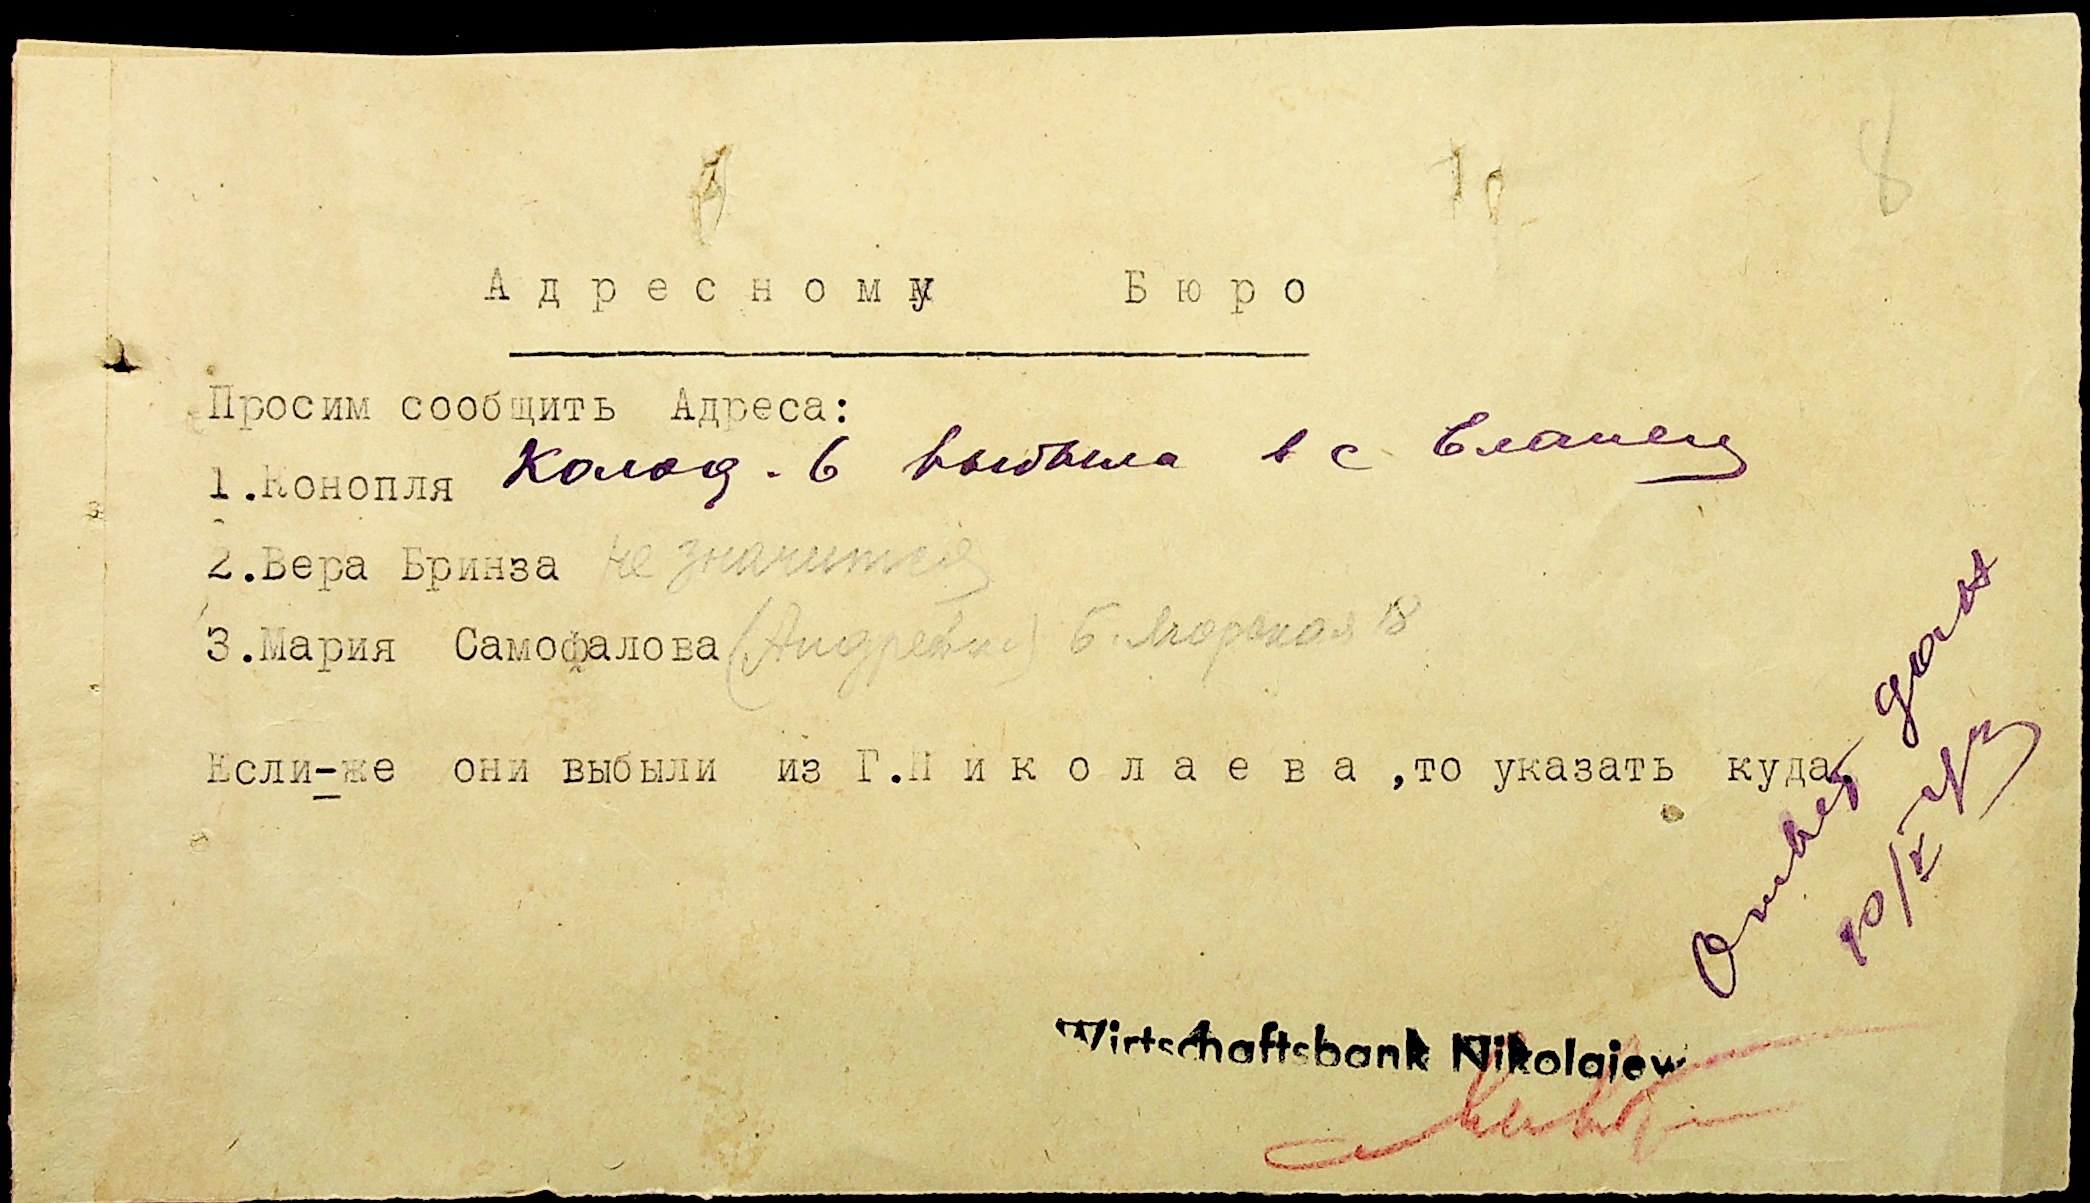 8
Адресному Бюро
Просим сообщить Адреса:
1.Конопля Колод. 6 выбыла в с Еланец
2.Вера Бринза не значится
3.Мария Самофалова (Андреевна) Б. Морская 18
Если-же они выбыли из Г.Николаева,то указать куда.
Ответ дан
10/X
Wirtschaftsbank Nikolajew